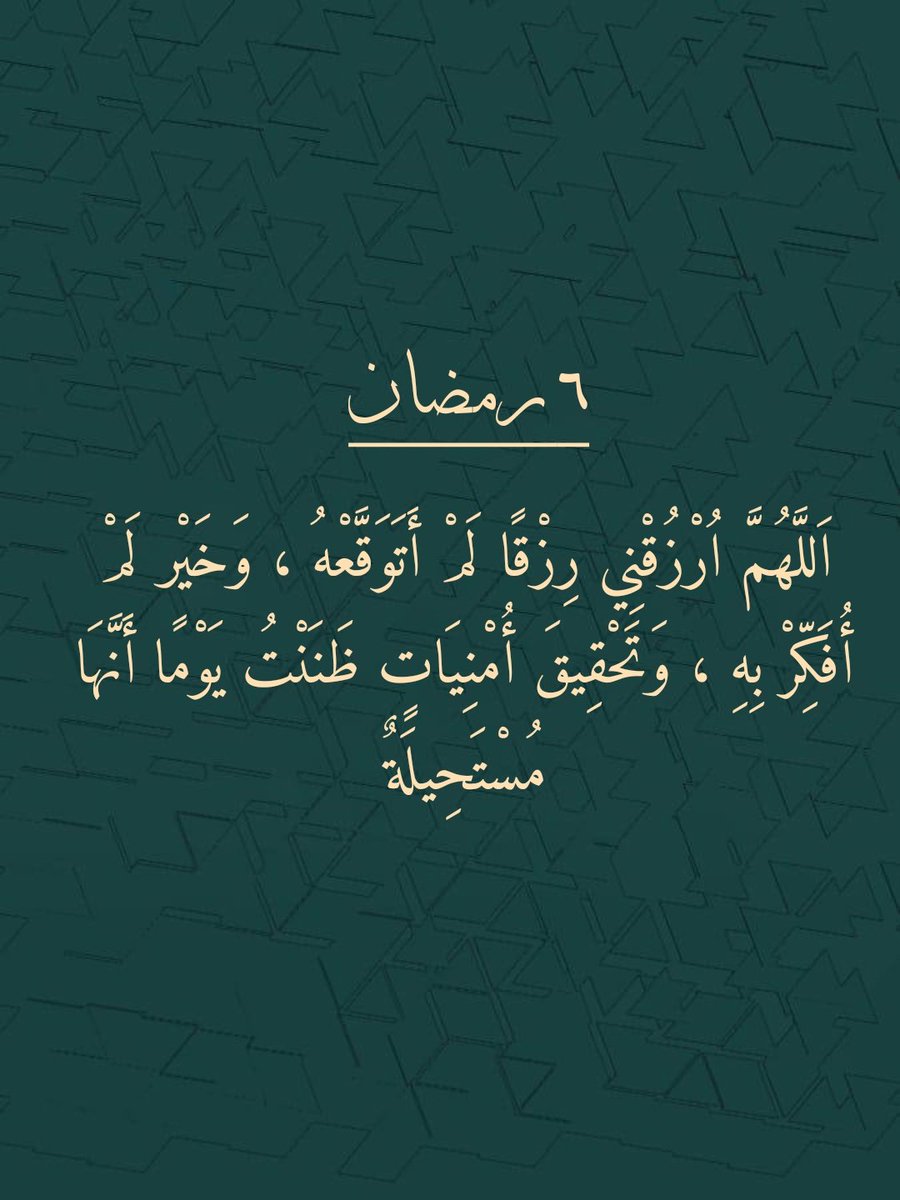 ٦ رمضان
اَللَّهُمَّ اُرْزُقْنِي رِزْقًا لَمْ أَتَوَقَّعْهُ ، وَخَيْر لَمْ
أُفَكِّرْ بِهِ ، وَتَحْقِيقَ أُمْنِيَاتٍ ظَنَنْتُ يَوْمًا أَنَّهَا
مُسْتَحِيلَةٌ